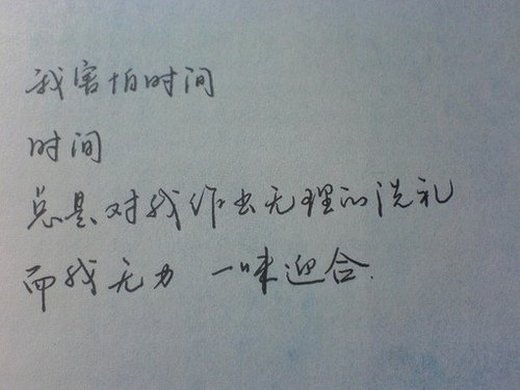 我害怕时间
时间
总是对我作出无理的洗礼
而我无力 一味迎合.